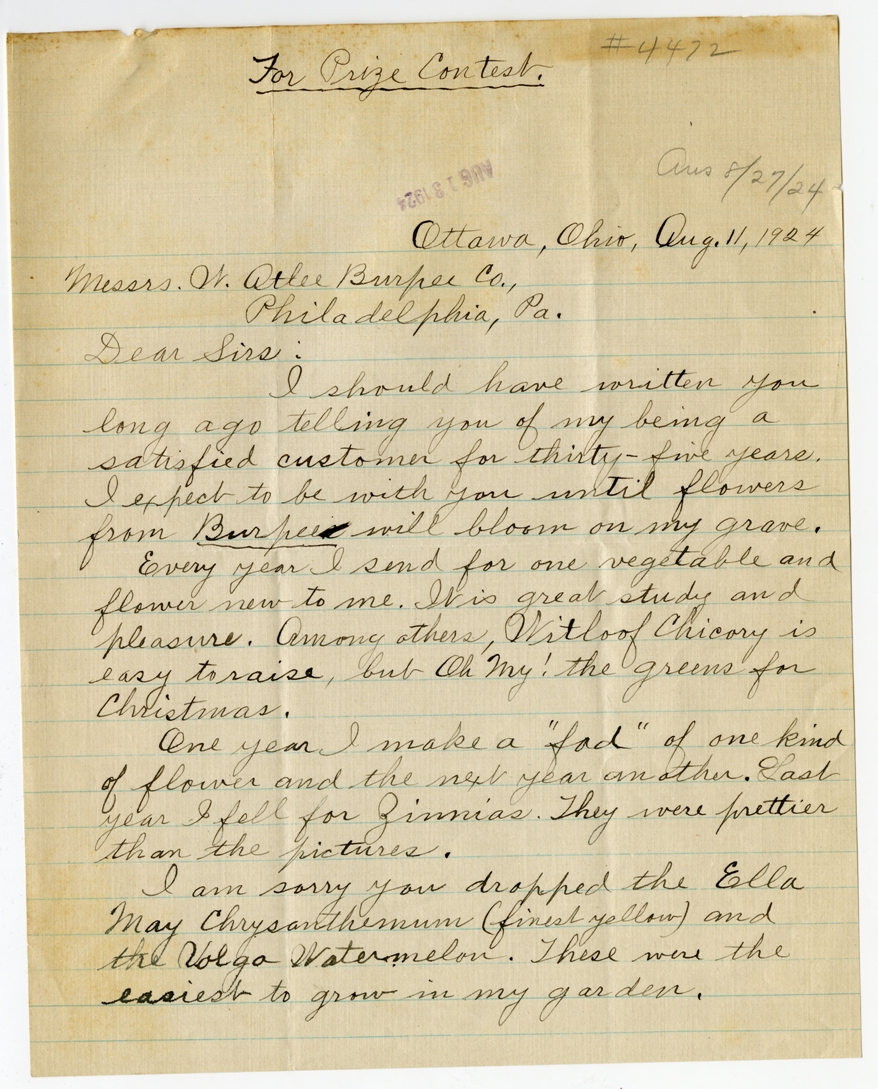 #4472
For Prize Contest.
Ans 8/27/24
AUG 13 1924
Ottawa, Ohio, Aug. 11, 1924
Messrs. W. Atlee Burpee Co.,
Philadelphia, Pa.
Dear Sirs:
I should have written you
long ago telling you of my being a
satisfied customer for thirty-five years.
I expect to be with you until flowers
from Burpee will bloom on my grave.
Every year I send for one vegetable and
flower new to me. It is great study and
pleasure. Among others, Witloof Chicory is
easy to raise, but Oh My! the greens for
Christmas.
One year I make a "fad" of one kind
of flower and the next year another. Last
year I fell for Zinnias. They were prettier
than the pictures.
I am sorry you dropped the Ella
May Chrysanthemum (finest yellow) and
the Volga Watermelon. These were the
easiest to grow in my garden.